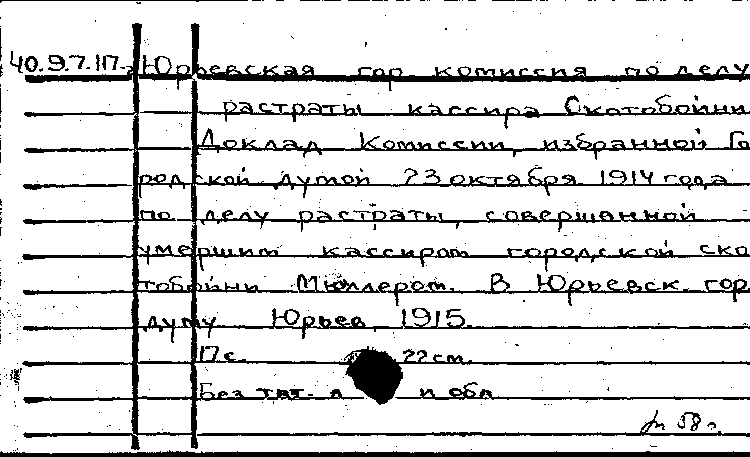 40.9.7.117. Юрьевская гор комиссия по делу
растраты кассира Скотобойни
Доклад Комиссии, избранной Го
родской думой 23 октября 1914 года
по делу растраты, совершенной
умершим кассиром городской ско
тобойни Мюллером. В Юрьевск. гор.
думу Юрьев, 1915.
17 с. 22 см.
Без тит. л и обл
58 г.